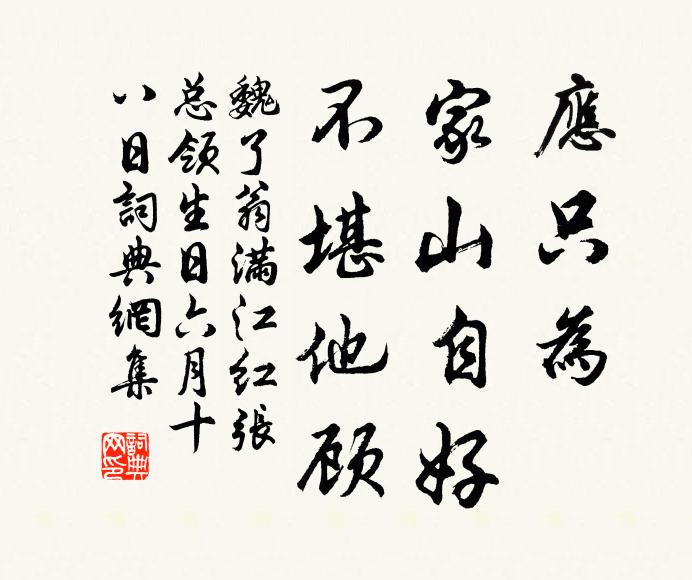 應只為
家山自好
不堪他顾
魏了翁满江红張
总领生日六月十
八日詞典網集
詞典網印